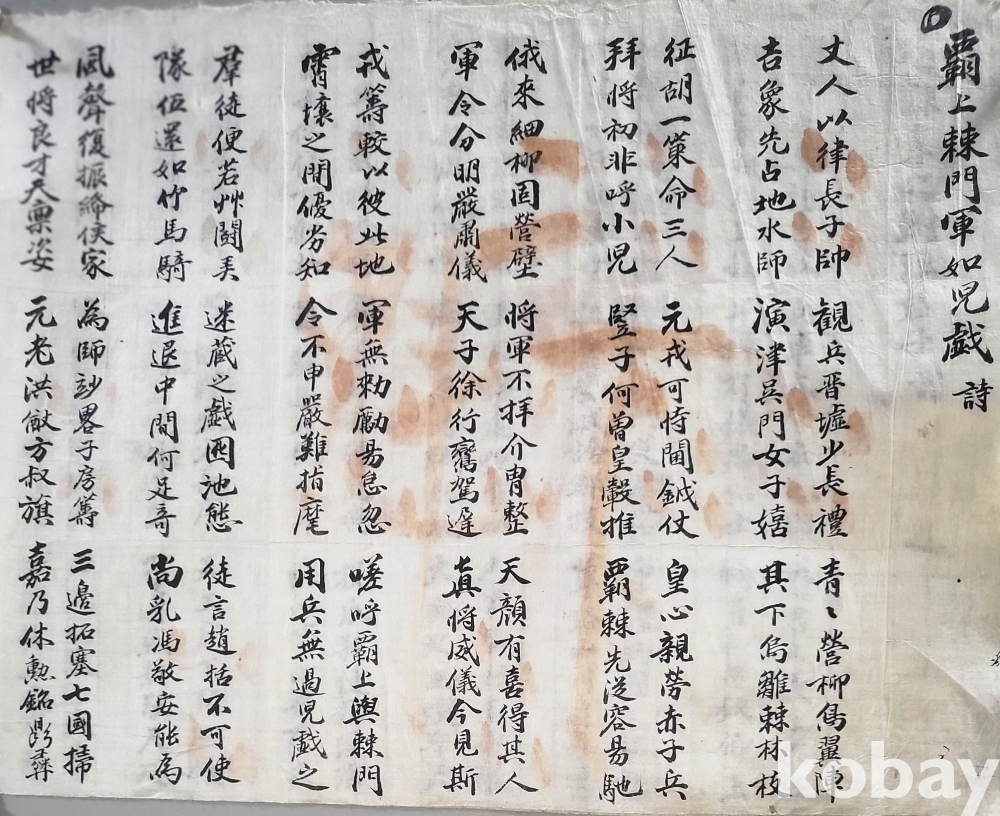 覇上棘門軍如兒戱 詩
丈人以律長子帥
吉象先占地水師
觀兵晋墟少長禮
演津吳門女子嬉
青〻營柳鳥翼陣
其下烏雛棘林枝
征胡一策命三人
拜將初非呼小兒
元戎可恃閫鉞仗
竪子何曾皇轂推
皇心親勞赤子兵
覇棘先從容易馳
俄來細柳固營壁
軍令分明嚴肅儀
將軍不拜介冑整
天子徐行鸞駕遲
天顔有喜得其人
眞將威儀今見斯
戎籌較以彼此地
霄壤之間優劣知
軍無勅勵易怠忽
令不申嚴難指麾
嗟呼覇上與棘門
用兵無過兒戱之
羣徒便若艸鬪美
隊伍還如竹馬騎
迷藏之戱池態
進退中間何足奇
徒言趙括不可使
尚乳馮敬安能爲
風聲復振絳侯家
世將良才天稟姿
爲師畧子房籌
元老洪猷方叔旗
三邊拓塞七國掃
嘉乃休勳銘鼎彛
kobay